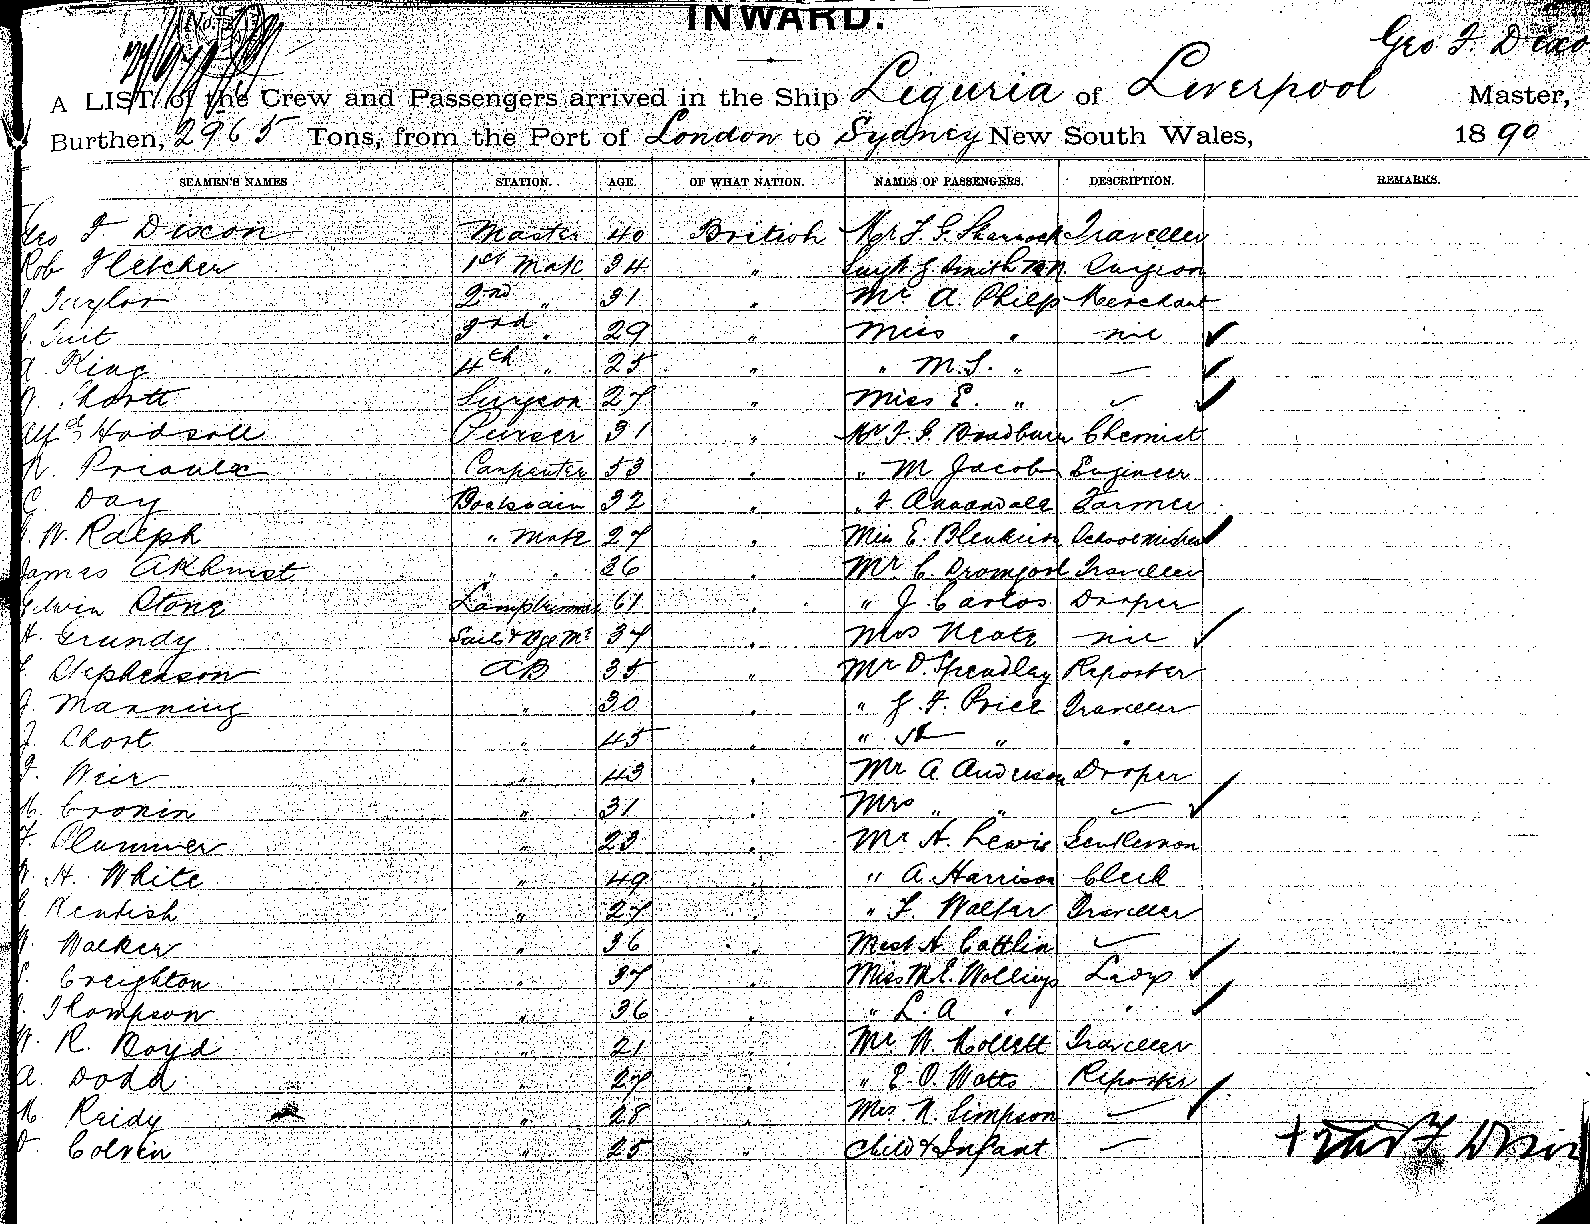 INWARD.
Geo F. Dixo
A LIST of the Crew and Passengers arrived in the Ship Liguria of Liverpool Master,
Burthen, 2965 Tons, from the Port of London to Sydney New South Wales, 1890
SEAMEN'S NAMES STATION. AGE. OF WHAT NATION. NAMES OF PASSENGERS. DESCRIPTION. REMARKS.
Geo F Dixon Master 40 British Mr F. G. Traveller
Rob Fletcher 1st Mate 34 " Smith Surgeon
Taylor 2nd " 31 " Mr A. Philp Merchant
Tuit 3rd " 29 " Miss " nil
King 4th " 25 " " M.S. " —
Shortt Surgeon 27 " Miss E. "
Alfd Hodsoll Purser 31 " Mr F. G. Bradburn Chemist
Prioulx Carpenter 53 " " M Jacobs Engineer
C. Day Boatswain 32 " " Annandale Farmer
W. Ralph " Mate 27 " Miss E. Blenkiron
James Akhurst " " 26 Mr C. Dromgool Traveller
Stone 61 " " J Carlos Draper
H. Grundy 37 " Mrs Neate nil
Stephenson AB 35 " Mr D. Spendley Reporter
J. Manning " 30 " " J. F. Price Traveller
J. Short " 45 " " "
Weir " 43 " Mr A Anderson Draper
Cronin " 31 " Mrs " "
F. Plummer " 23 " Mr H. Lewis Gentleman
W. H. White " 49 " " A. Harrison Clerk
Kentish " 27 " " F. Walter Traveller
W. Walker " 36 " H. Cattlin
Creighton " 37 " Miss M. E. Lady
Thompson " 36 " " L. A " "
W. R. Boyd " 21 " Mr W. Hollett Traveller
A. Dodd " 27 " " E. O. Watts Reporter
Reidy " 28 " Mrs N. Simpson —
Colvin " 25 " Child & Infant —